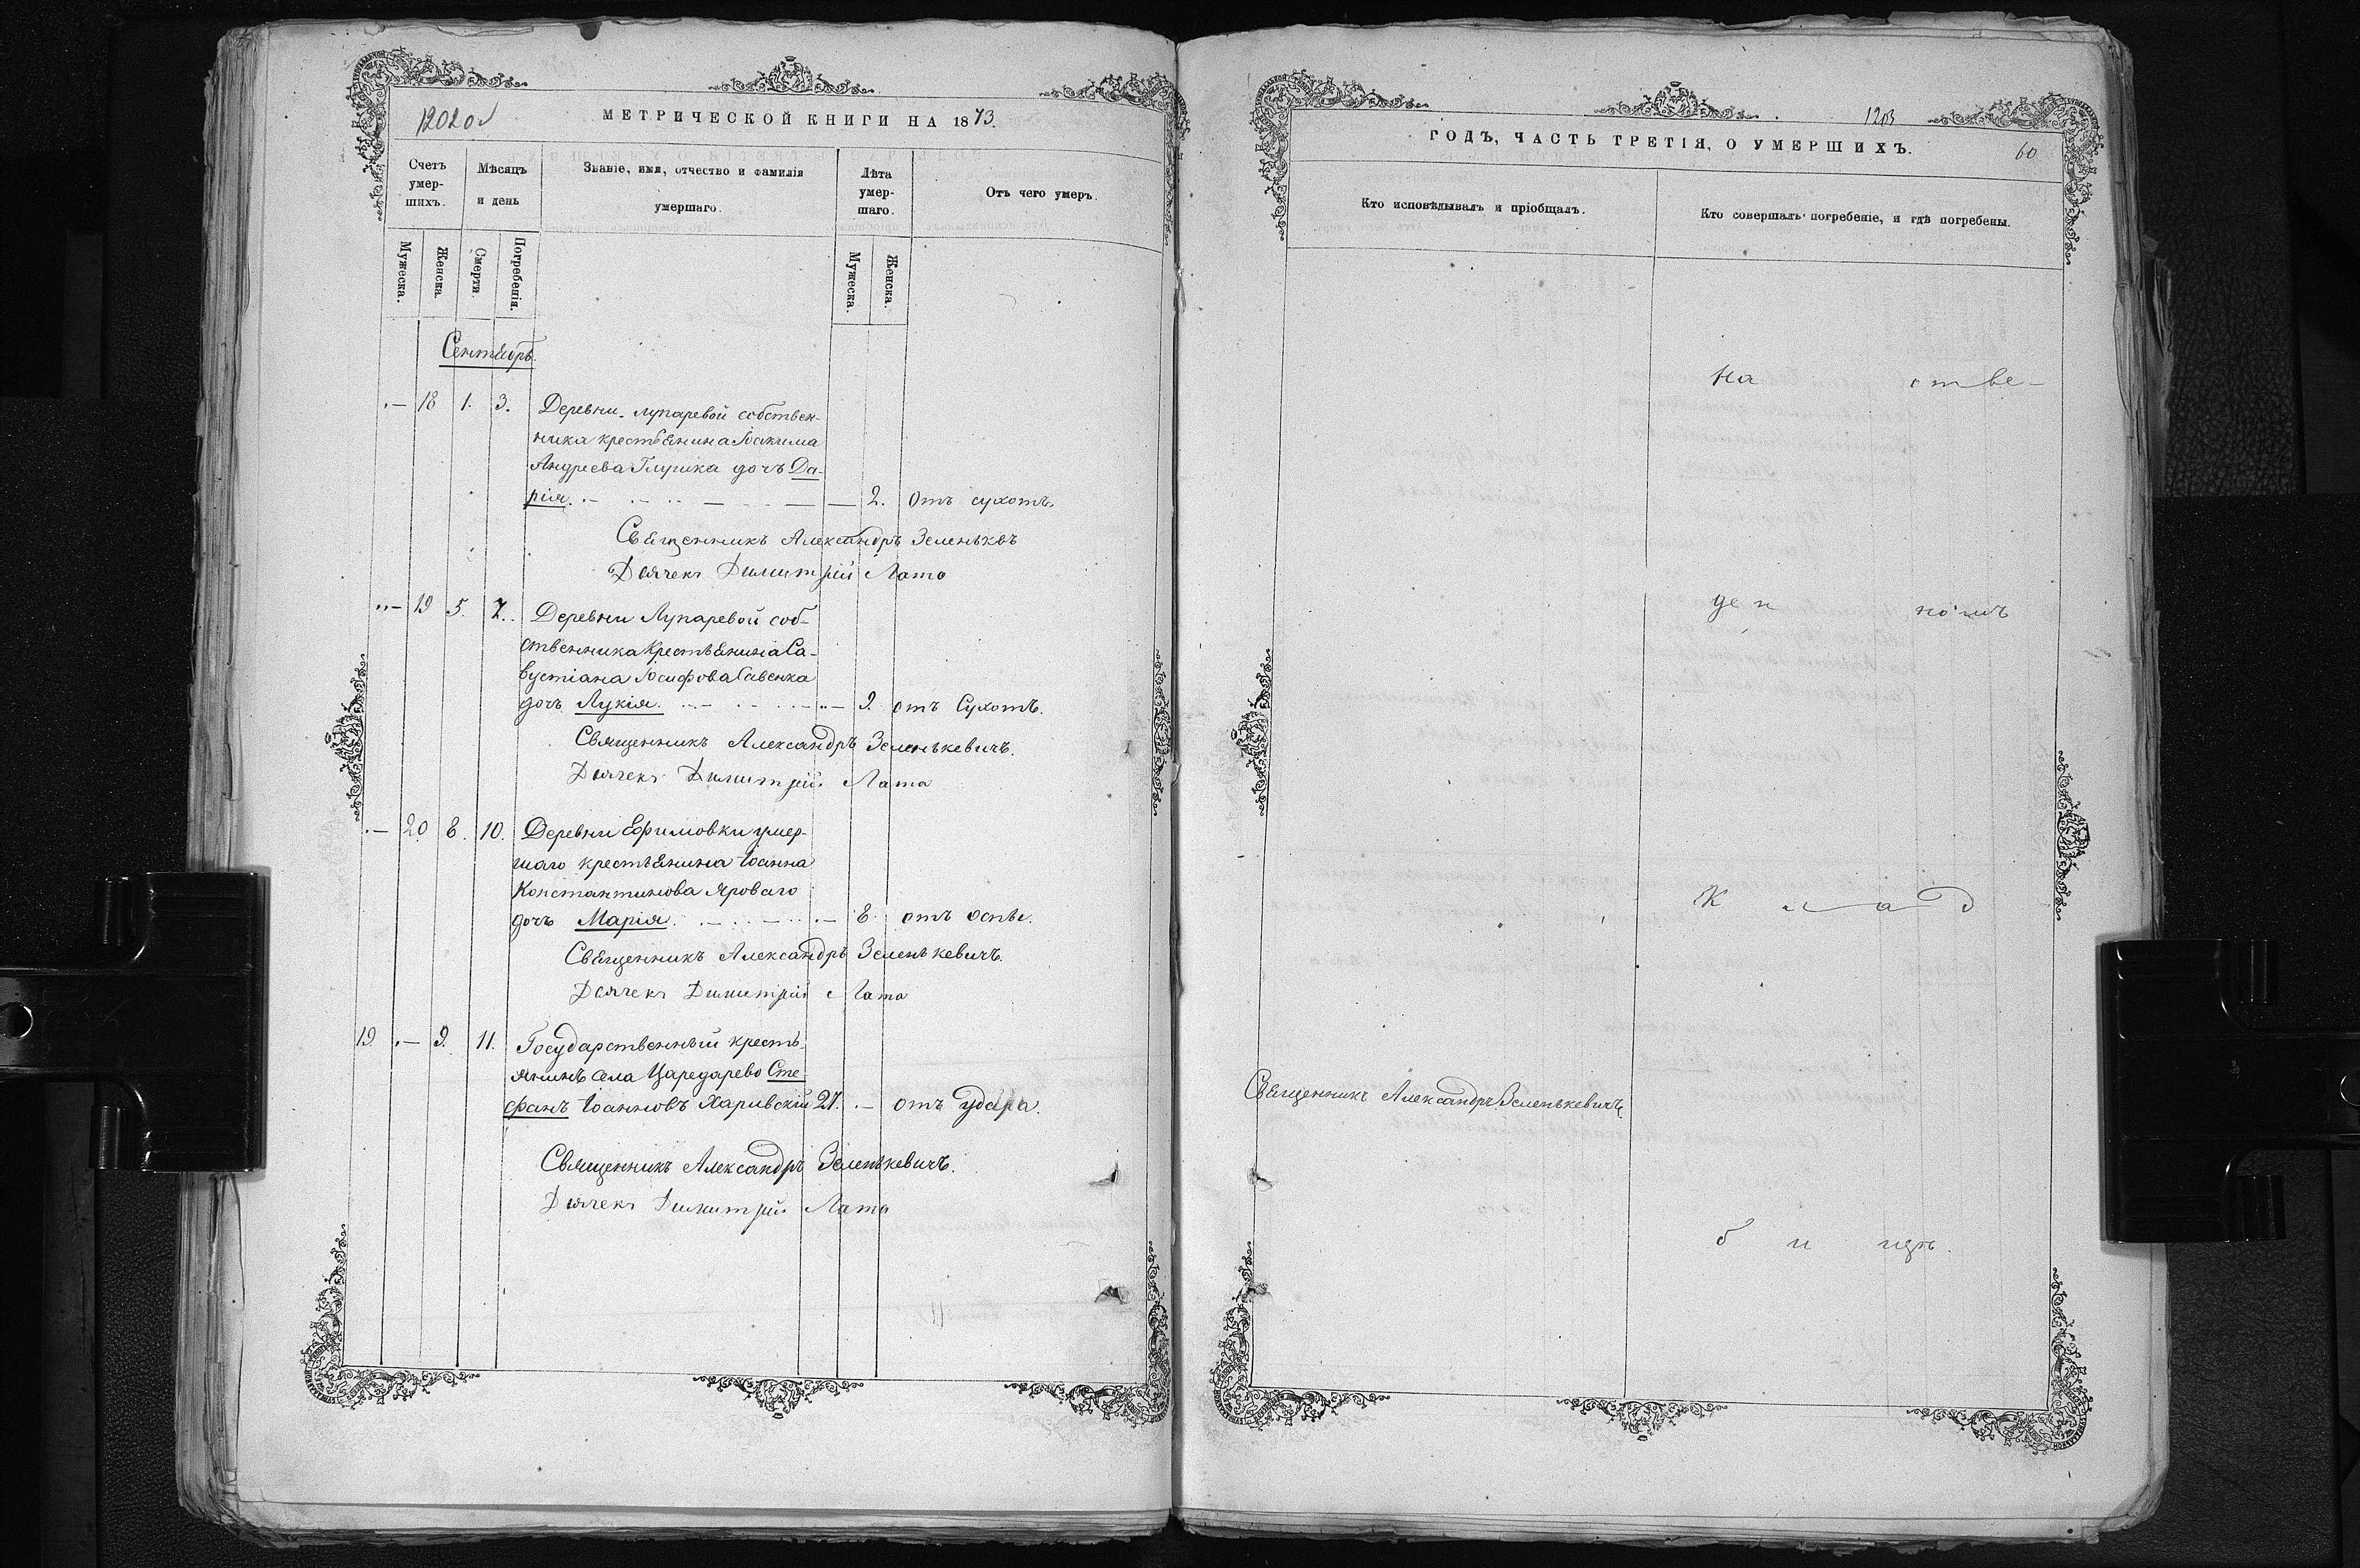 1202 об
МЕТРИЧЕСКОЙ КНИГИ НА 1873.
Счетъ умер-шихъ.
Мѣсяцъ и день
Званіе, имя, отчество и фамилія умершаго.
Лѣта умер-шаго.
Отъ чего умеръ.
Мужеска.
Женска.
Смерти.
Погребенія.
Мужеска.
Женска.
Сентябрь.
18 1. 3. Деревни Лупаревой собствен-
ника крестьянина Іоакима
Андреева Глушка дочь Да-
рія. 2. Отъ сухотъ.
Священникъ Александръ Зеленьквъ
Дьячекъ Димитрій Лата
19 5. 7. Деревни Лупаревой соб-
ственника крестьянина Са-
вустіана Іосифова Савенка
дочь Лукія. 9. отъ Сухотъ.
Священникъ Александръ Зеленькевичъ.
Дьячекъ Димитрій Лата
20 8. 10. Деревни Ефимовки умер-
шаго крестьянина Іоанна
Константинова Яроваго
дочь Марія. 8. отъ оспы.
Священникъ Александръ Зеленькевичъ.
Дьячекъ Димитрій Лата
19 9. 11. Государственный кресть-
янинъ села Царедарево Сте-
фанъ Іоанновъ Харивскій 27. отъ удара.
Священникъ Александръ Зеленькевичъ.
Дьячекъ Димитрій Лата
1203
ГОДЪ, ЧАСТЬ ТРЕТІЯ, О УМЕРШИХЪ.
60
Кто исповѣдывалъ и пріобщалъ.
Кто совершалъ погребеніе, и гдѣ погребены.
На отве-
ден номъ
К л а д
Священникъ Александръ Зеленькевичъ.
б и щѣ.